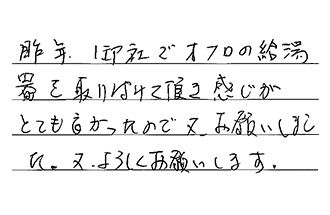 昨年、1印社でオフロの給湯
器を取り付けて頂き感じが
とても良かったので又、お願いしまし
た。又、よろしくお願いします。